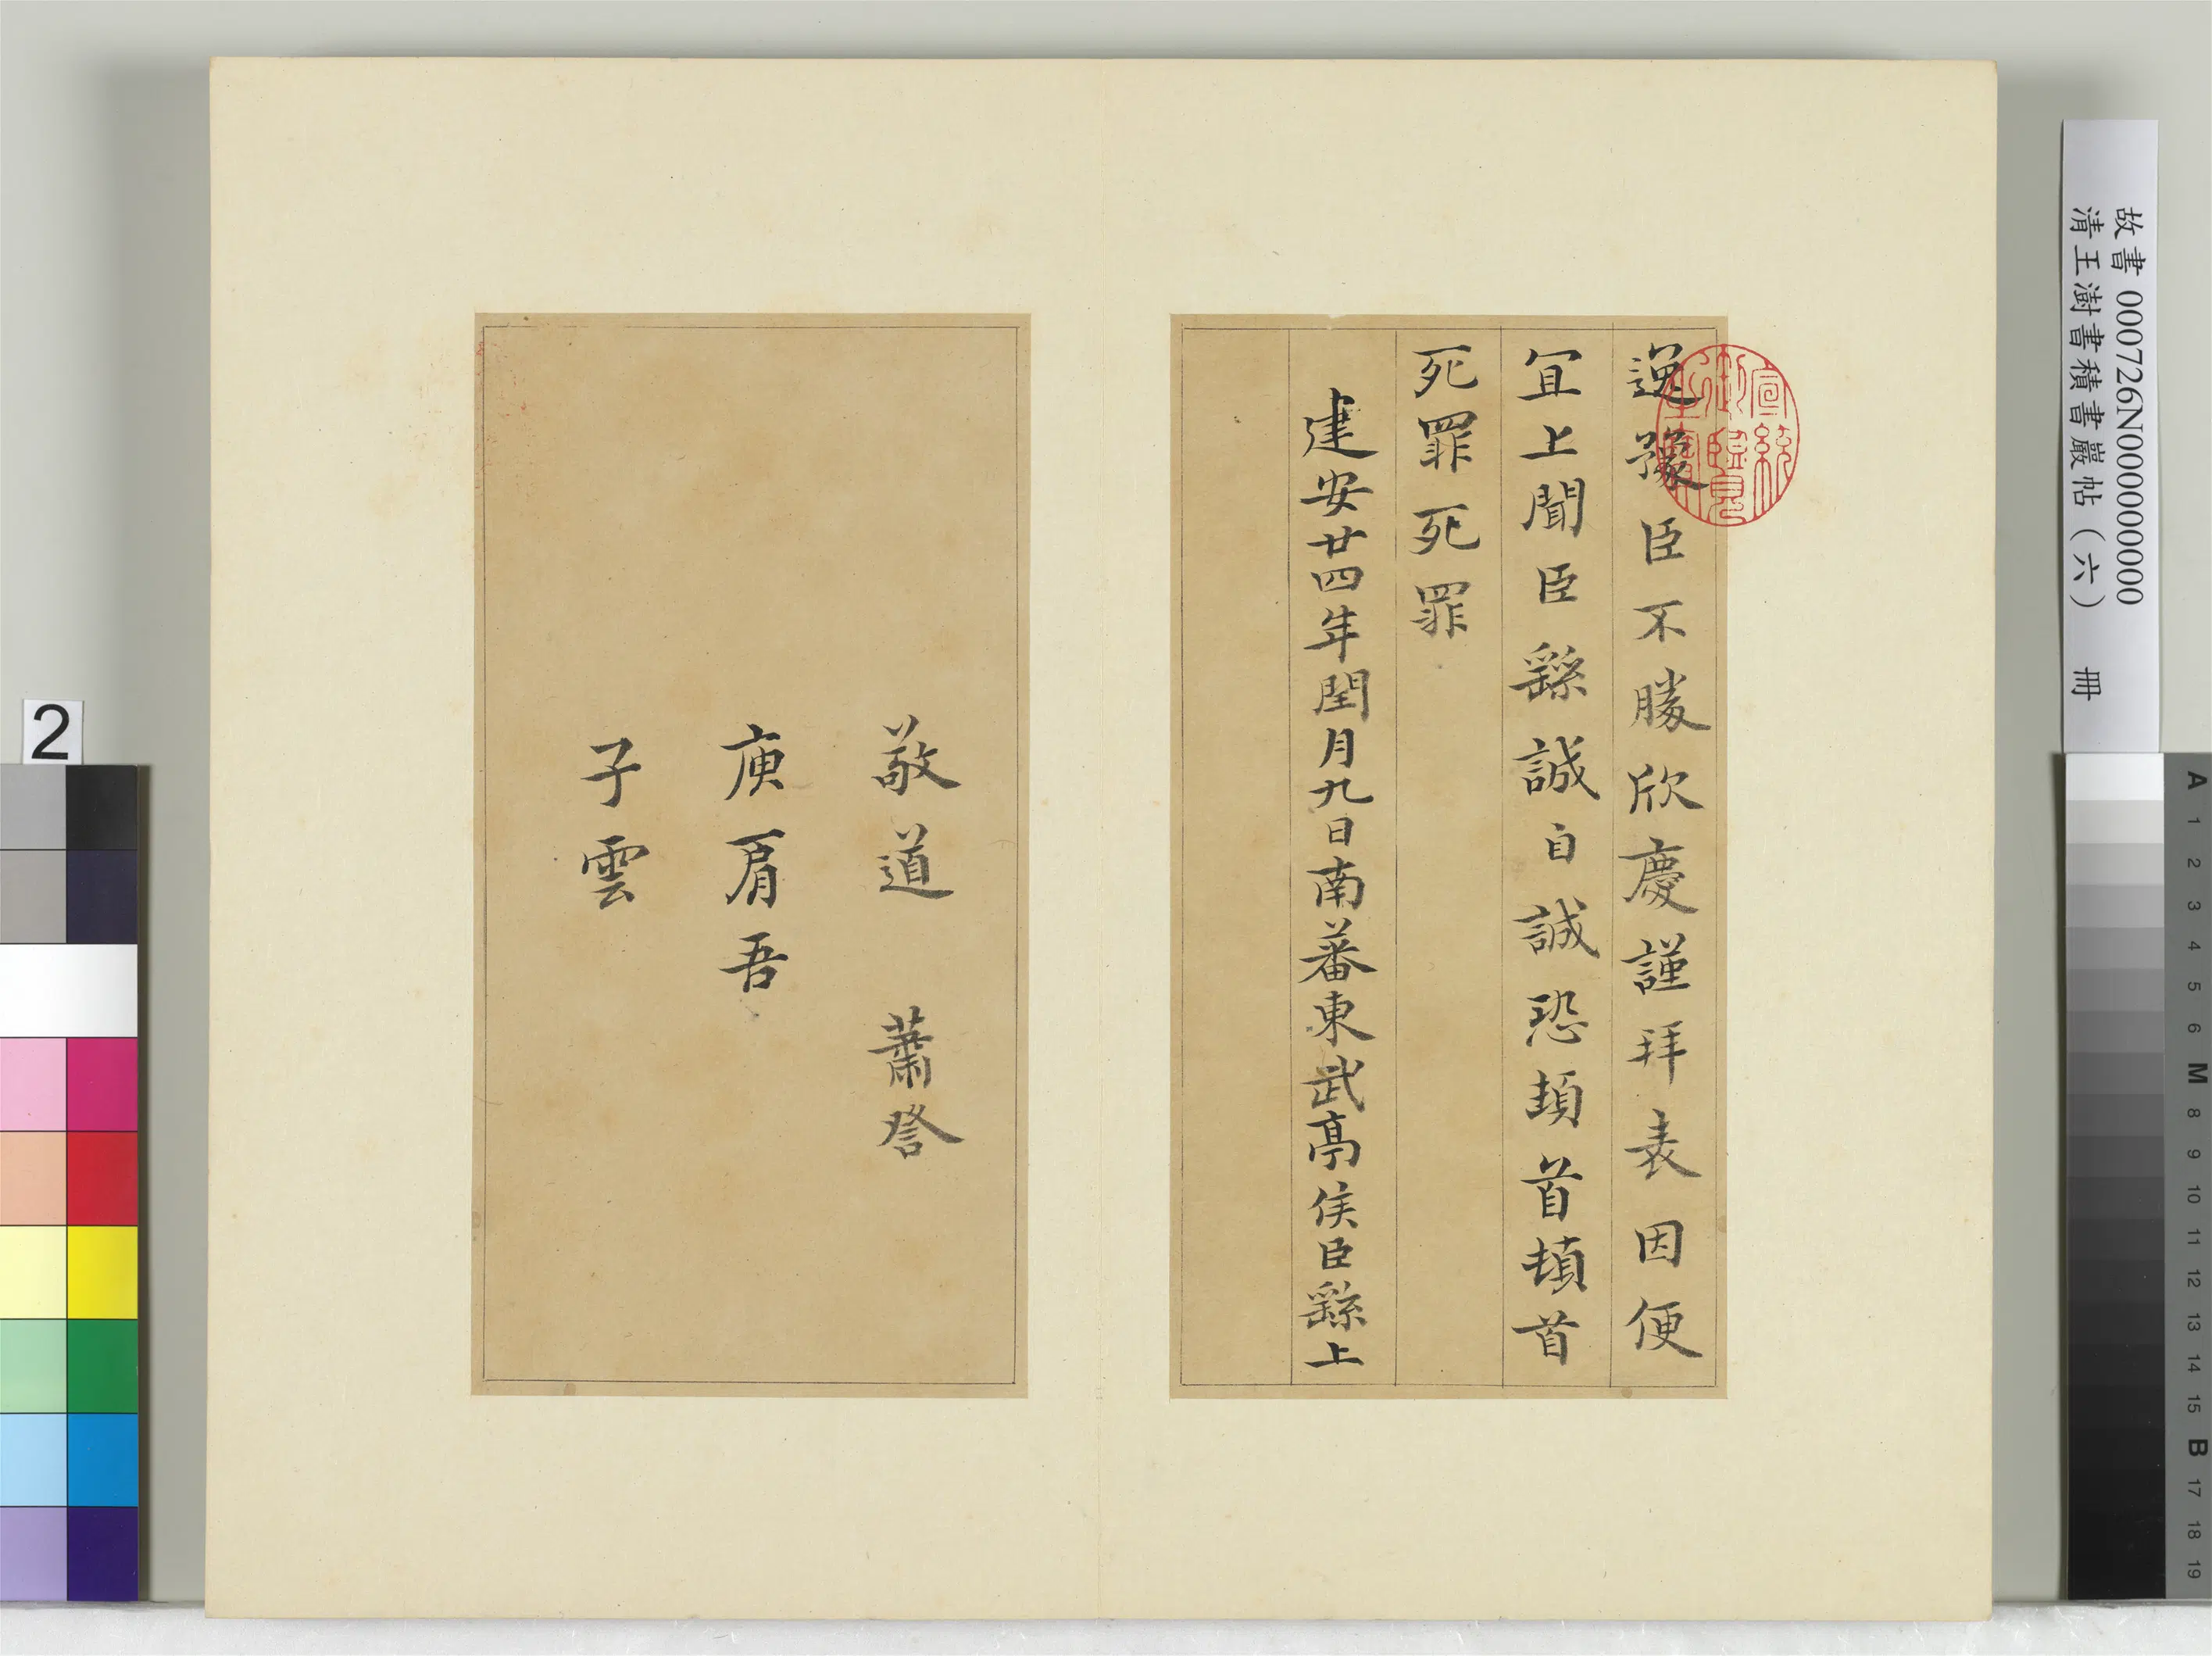 故書 000726N000000000
清王澍書積書巖帖（六） 冊
宣統御覽之寶
逸豫臣不勝欣慶謹拜表因便
宜上聞臣繇誠自誠恐頓首頓首
死罪死罪
建安廿四年閏月九日南蕃東武亭侯臣繇上
敬道 蕭詧
庾肩吾
子雲
2
A 1 2 3 4 5 6 M 8 9 10 11 12 13 14 15 B 17 18 19